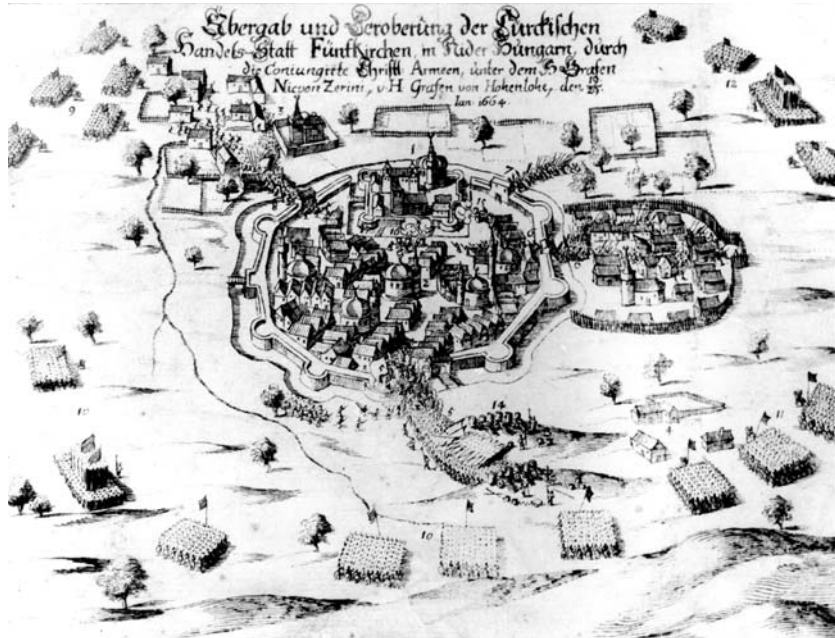 Übergab und Eroberung der Türckischen
Handels-Statt Fünffkirchen, in Nider Hungarn, durch
die Coniungirte Christl Armeen, unter dem H Grafen
Nic von Zerini, v H Grafen von Hohenlohe, den 19/29.
Ian. 1664.
9
12
2
1
7
10
11
10
14
5
10